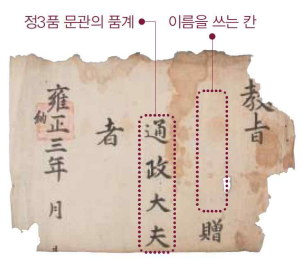 정3품 문관의 품계
이름을 쓰는 칸
敎旨
贈
通政大夫
者
雍正三年 月
納